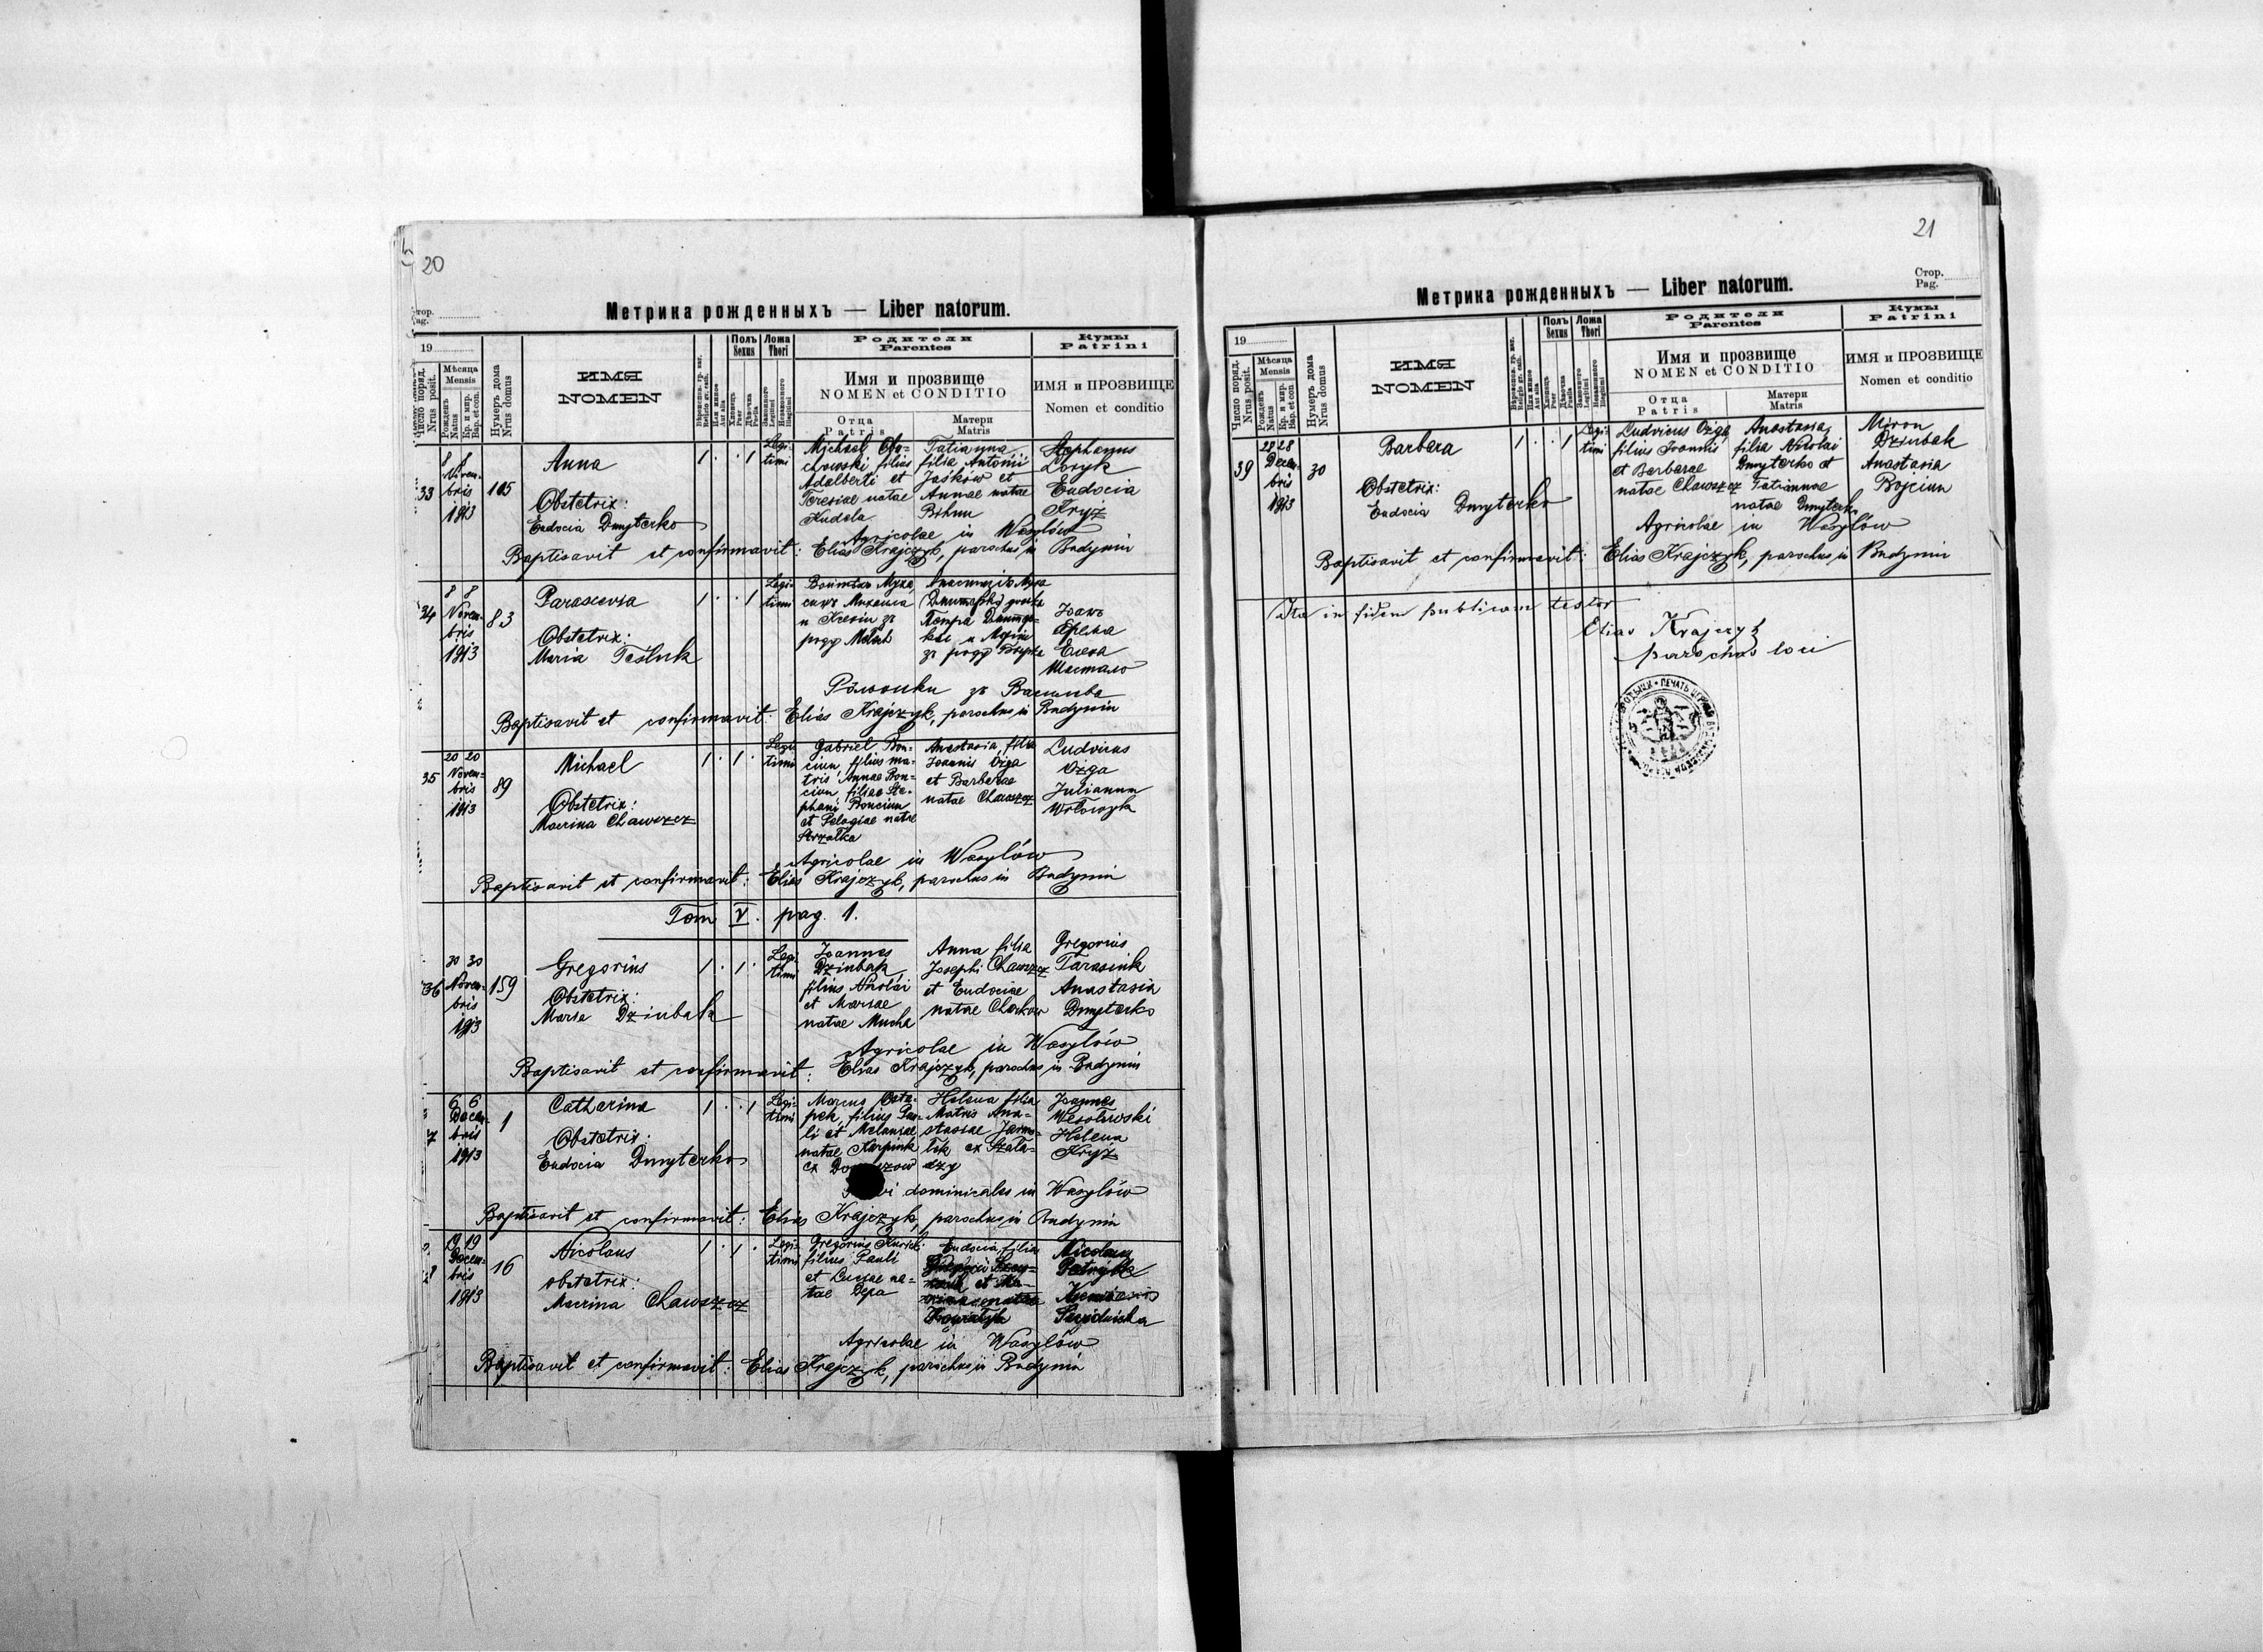 20
Стор.
Pag.
Метрика рожденныхъ — Liber natorum.
19
Число поряд.
Nrus posit.
Мѣсяца
Mensis
Рожденъ
Natus
Кр. и мир.
Bap. et con.
Нумеръ дома
Nrus domus
ИМЯ
NOMEN
Religio gr. cath.
Или иное
Aut alia
Полъ
Sexus
Хлопецъ
Puer
Дѣвочка
Puella
Ложа
Thori
Законного
Legitimi
Незаконного
Illegitimi
Родители
Parentes
Имя и прозвище
NOMEN et CONDITIO
Отца
Patris
Матери
Matris
Кумы
Patrini
ИМЯ и ПРОЗВИЩЕ
Nomen et conditio
33
8 8
Novem-
bris
1913
105
Anna
Obstetrix:
Eudocia Dmyterko
1 . . 1
Legi-
timi
Michael
chowski filius
Adalberti et
Teresiae natae
Kudela
Tatianna,
filia Antonii
Jaśkow et
Annae natae
Bohun
Stephanus
Loryk
Eudocia
Kryz
Agricolae in Wasylów
Baptisavit et confirmavit: Elias Krajczyk, parochus in Budynin
34
8 8
Novem-
bris
1913
83
Parascevia
Obstetrix:
Maria Tesluk
1 . . 1
Legi-
timi
Муха,
сынъ Михаила
и Ксении зъ
роду
Анастазія Муха
Петра
и Марии
зъ роду
Іоанъ
Ярема
Елена
Шостало
Рôльники зъ Василева
Baptisavit et confirmavit: Elias Krajczyk, parochus in Budynin
35
20 20
Novem-
bris
1913
89
Michael
Obstetrix:
Macrina Chawszcz
1 . 1 .
Legi-
timi
Gabriel Bon-
ciun filius ma-
tris Annae Bon-
ciun, filiae Ste-
phani Bonciun
et Pelagiae natae
Strzałka
Anastasia, filia
Joannis Ożga
et Barbarae
natae Chawszcz
Ludvicus
Ożga
Julianna
Wołoszyk
Agricolae in Wasylów
Baptisavit et confirmavit: Elias Krajczyk, parochus in Budynin
Tom V. pag. 1.
36
30 30
Novem-
bris
1913
159
Gregorius
Obstetrix:
Maria Dziubak
1 . 1 .
Legi-
timi
Joannes
Dziubak,
filius Nikolai
et Mariae
natae Mucha
Anna filia
Josephi Chawszcz
et Eudociae
natae
Gregorius
Tarasiuk
Anastasia
Dmyterko
Agricolae in Wasylów
Baptisavit et confirmavit: Elias Krajczyk, parochus in Budynin
7
6 6
Decem-
bris
1913
1
Catharina
Obstetrix:
Eudocia Dmyterko
1 . . 1
Legi-
timi
Marcus Osta-
pek, filius Pau-
li et Melaniae
natae Karpiuk
ex
Helena filia
Matris Ana-
stasiae
ex
Joannes
Wesołowski
Helena
Kryż
dominicales in Wasylów
Baptisavit et confirmavit: Elias Krajczyk, parochus in Budynin
19 19
Decem-
bris
1913
16
Nicolaus
obstetrix:
Macrina Chawszcz
1 . 1 .
Legi-
timi
Gregorius
filius Pauli
et Luciae na-
tae Depa
Eudocia, filia
Nicolaus
Agricolae in Wasylów
Baptisavit et confirmavit: Elias Krajczyk, parochus in Budynin
21
Стор.
Pag.
Метрика рожденныхъ — Liber natorum.
19
Число поряд.
Nrus posit.
Мѣсяца
Mensis
Рожденъ
Natus
Кр. и мир.
Bap. et con.
Нумеръ дома
Nrus domus
ИМЯ
NOMEN
Religio gr. cath.
Или иное
Aut alia
Полъ
Sexus
Хлопецъ
Puer
Дѣвочка
Puella
Ложа
Thori
Законного
Legitimi
Незаконного
Illegitimi
Родители
Parentes
Имя и прозвище
NOMEN et CONDITIO
Отца
Patris
Матери
Matris
Кумы
Patrini
ИМЯ и ПРОЗВИЩЕ
Nomen et conditio
39
28 28
Decem-
bris
1913
30
Barbara
Obstetrix:
Eudocia Dmyterko
1 . . 1
Legi-
timi
Ludvicus Ożga,
filius Joannis
et Barbarae
natae Chawszcz
Anastasia,
filia Nikolai
Dmyterko et
Tatiannae
natae Dmyterko
Miron
Dziubak
Anastasia
Bojciun
Agricolae in Wasylów
Baptisavit et confirmavit: Elias Krajczyk, parochus in Budynin
Ita in fidem publicam testor
Elias Krajczyk
parochus loci